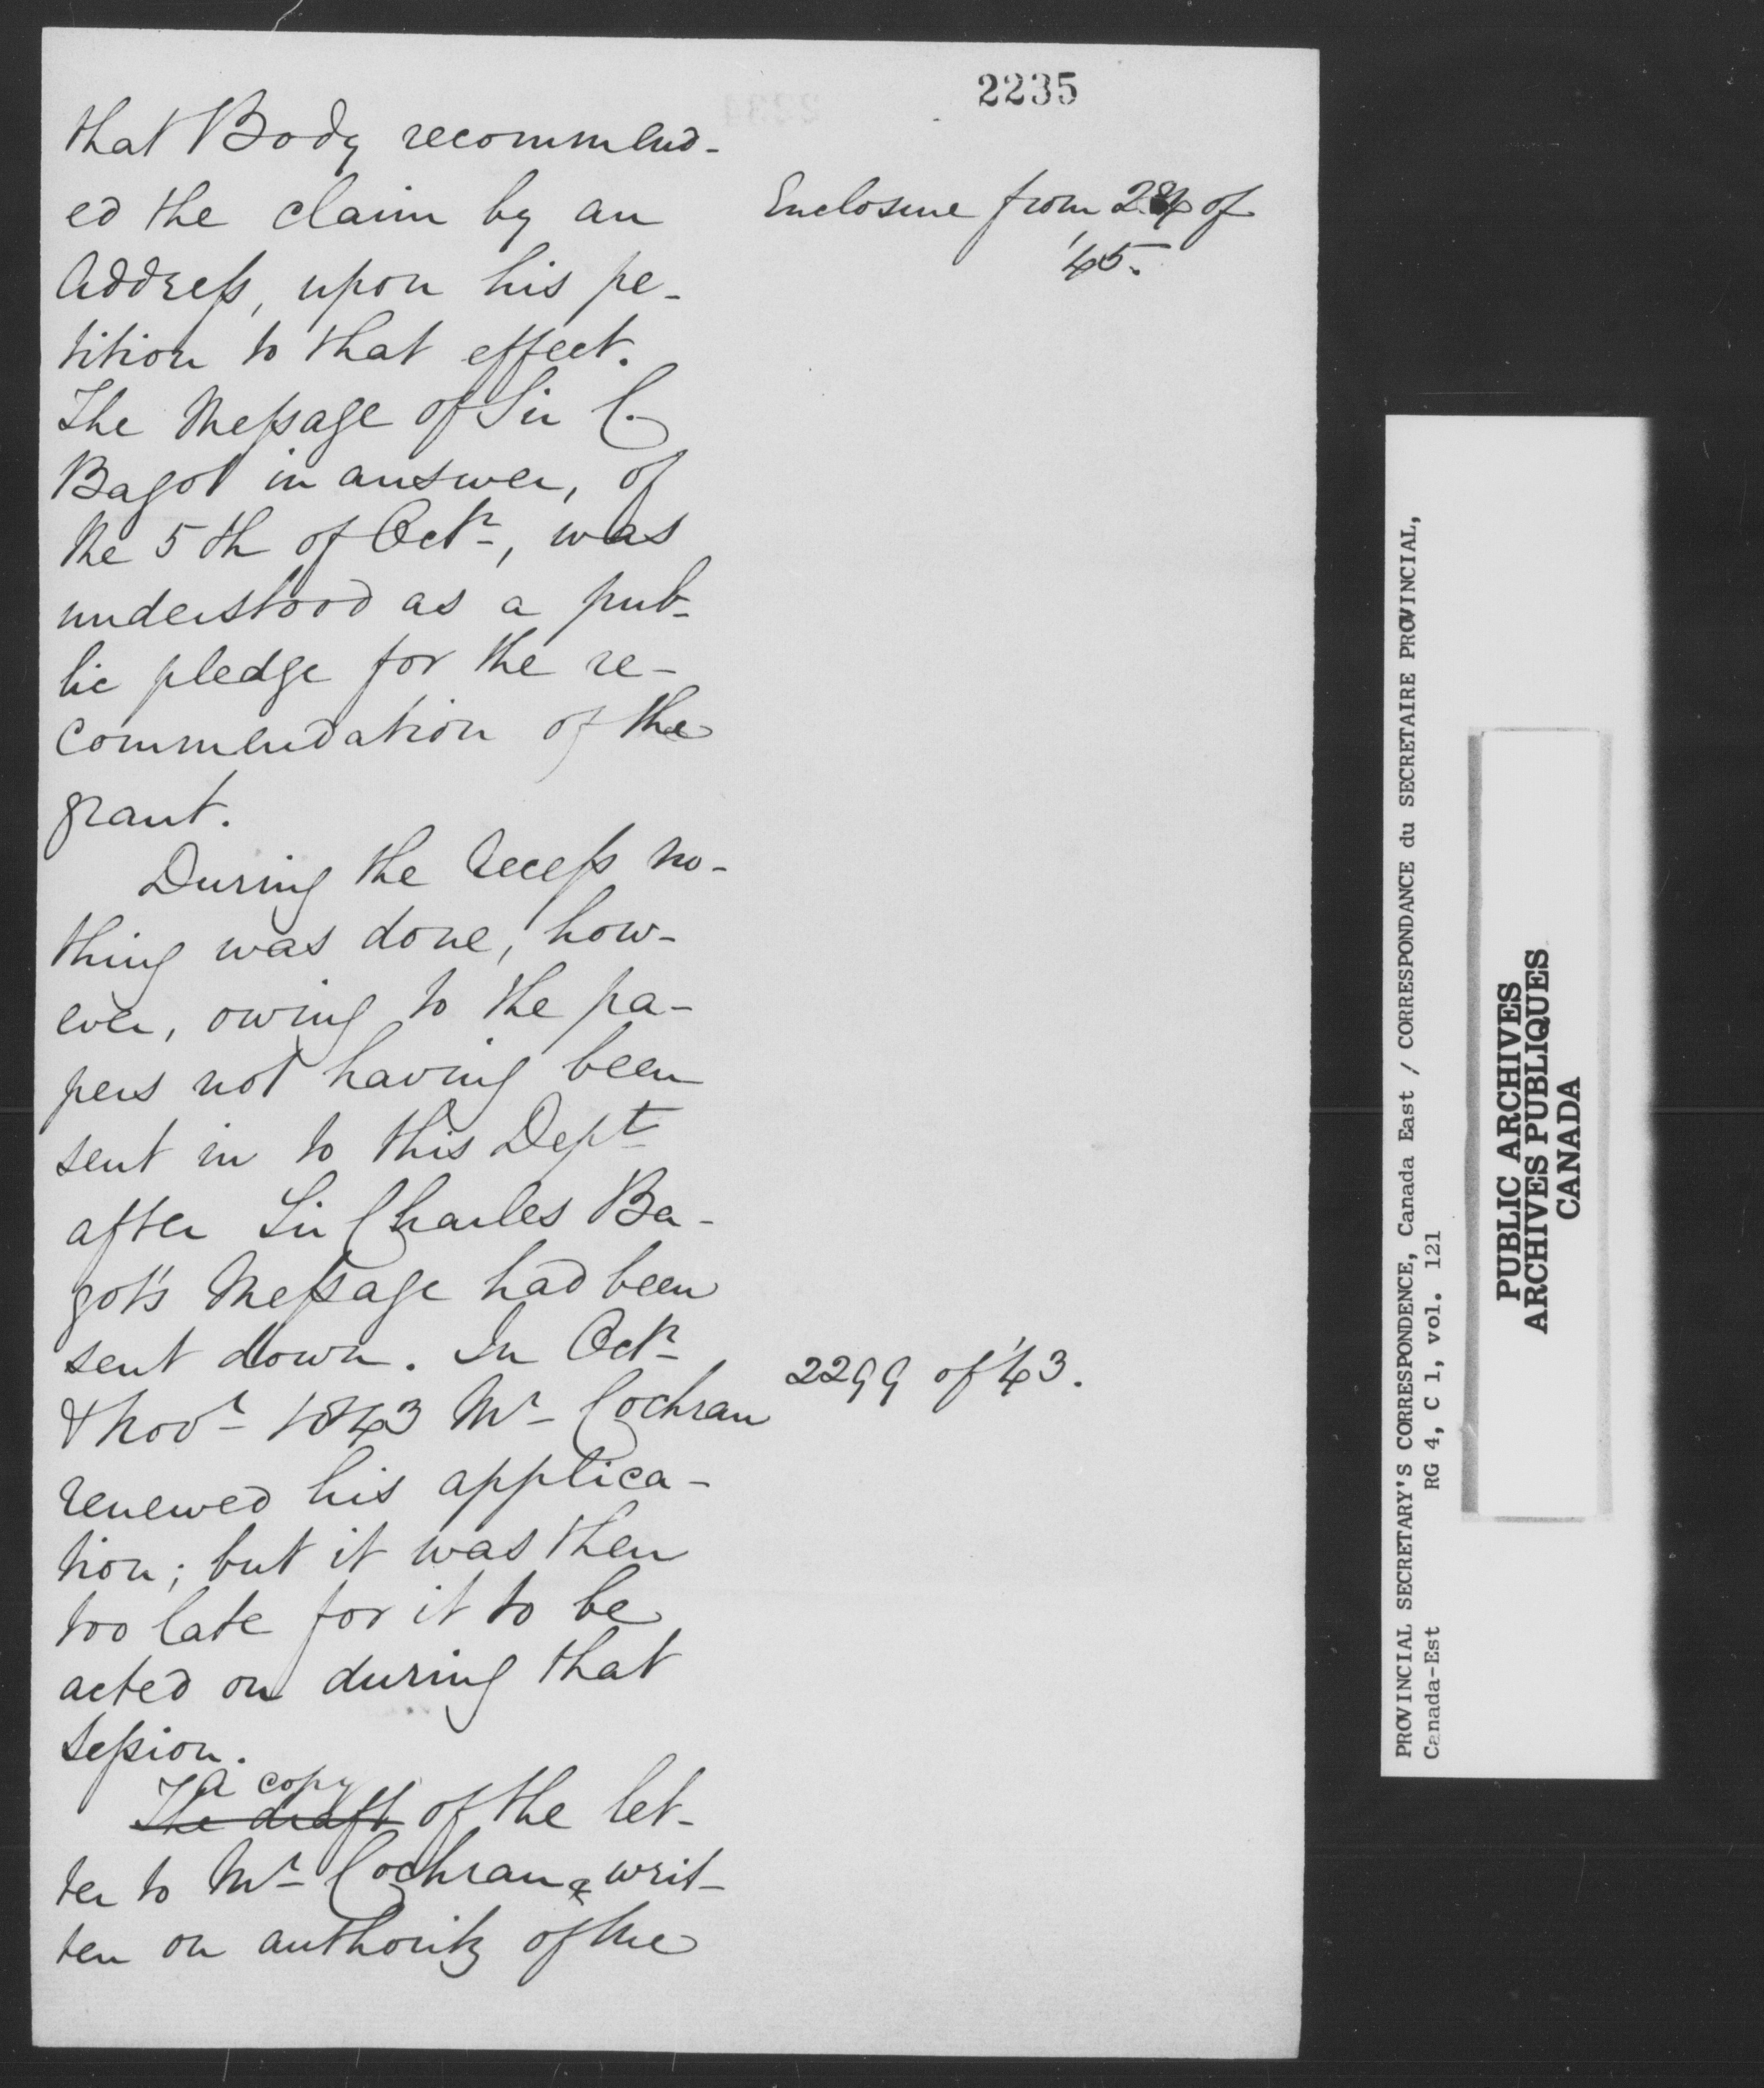 2235
that Body recommend-
ed the claim by an
Address, upon his pe-
tition to that effect.
The Message of Sir C.
Bagot in answer, of
the 5th of Octr, was
understood as a pub-
lic pledge for the re-
commendation of the
grant.
During the recess no-
thing was done, how-
ever, owing to the pa-
pers not having been
sent in to this Dept
after Sir Charles Ba-
got's Message had been
sent down. In Octr
& Novr 1843 Mr Cochran
renewed his applica-
tion; but it was then
too late for it to be
acted on during that
session.
a copy
The draft of the let-
ter to Mr Cochran writ-
ten on authority of the
Enclosure from of
'45.
2299 of '43.
PROVINCIAL SECRETARY'S CORRESPONDENCE, Canada East / CORRESPONDANCE du SECRETAIRE PROVINCIAL,
Canada-Est RG 4, C 1, vol. 121
PUBLIC ARCHIVES
ARCHIVES PUBLIQUES
CANADA